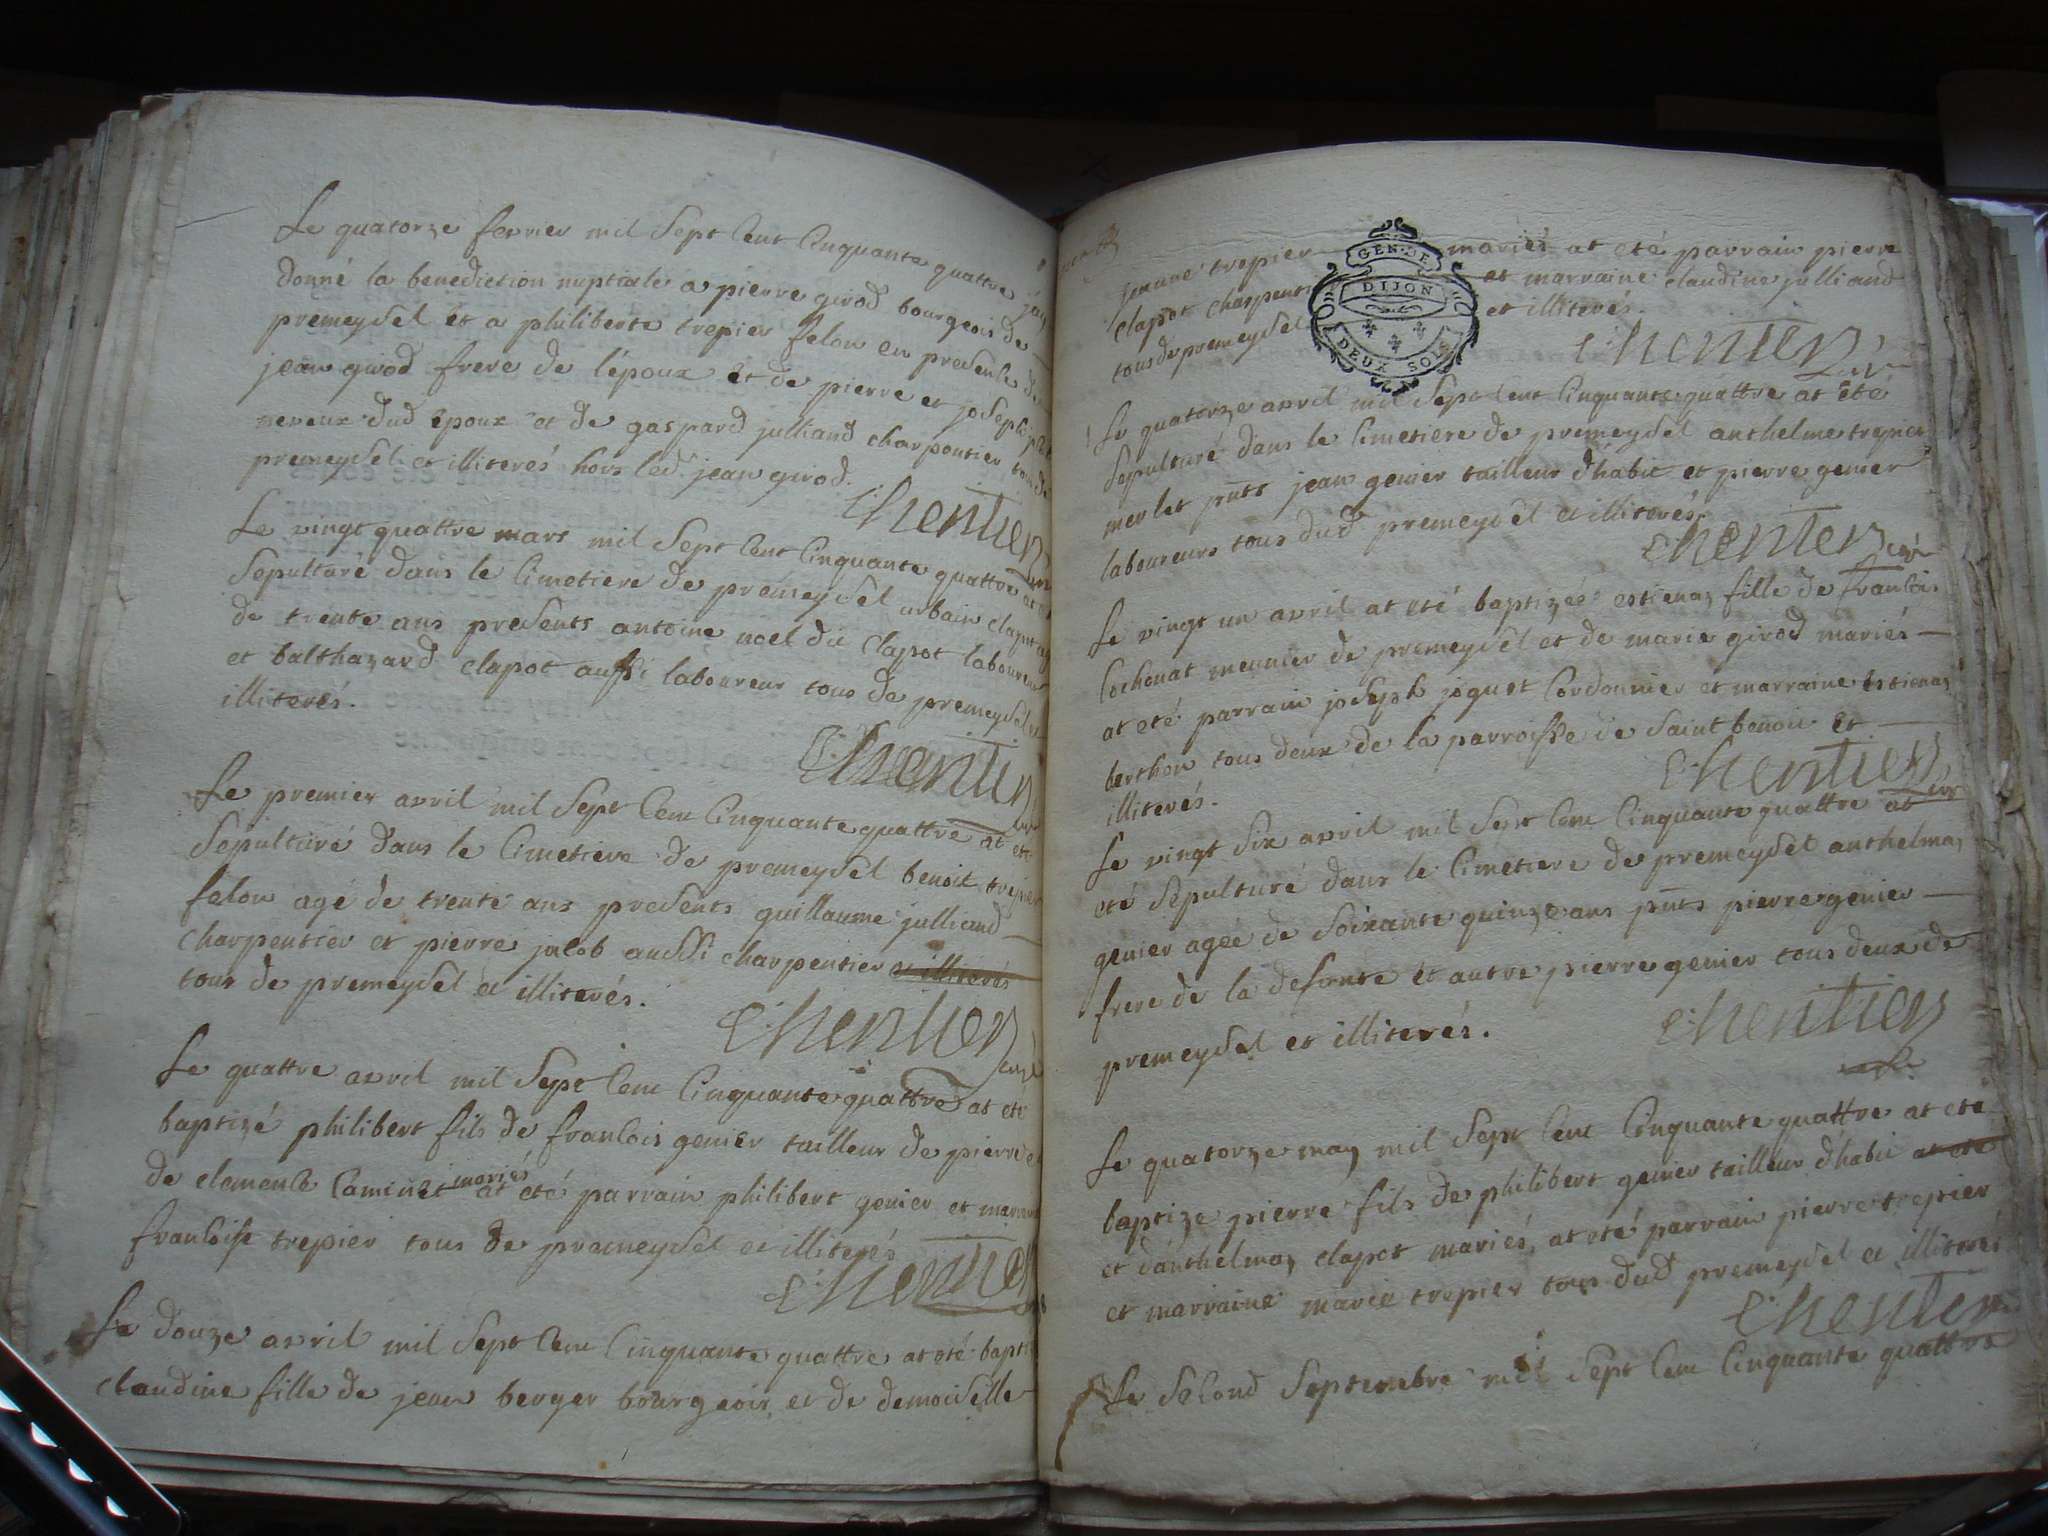 Le quatorze fevrier mil sept cent cinquante quattre j'ay
donné la benediction nuptiale a pierre girod bourgeois de
premeysel et a philiberte trepier felon en presence de
jean girod frere de l'époux et de pierre et joseph
neveux dud époux et de gaspard julliand charpentier tous de
premeysel et illiterés hors led. jean girod.
Chentier
Le vingt quattre mars mil sept cent cinquante quattre at eté
sepulturé dans le cimetiere de premeysel urbain clapot agé
de trente ans presents antoine noel dit clapot laboureur
et balthazard clapot aussi laboureur tous de premeysel et
illiterés.
Chentier
Le premier avril mil sept cent cinquante quattre at eté
sepulturé dans le cimetiere de premeysel benoit trepier
felon agé de trente ans presents guillaume julliand
charpentier et pierre jacob aussi charpentier et illiterés
tous de premeysel et illiterés.
Chentier curé
Le quattre avril mil sept cent cinquante quattre at eté
baptizé philibert fils de francois genier tailleur de pierre et
de clemence caminet mariés at eté parrain philibert genier et marraine
francoise trepier tous de premeysel et illiterés
Chentier
Le douze avril mil sept cent cinquante quattre at eté baptizé
claudine fille de jean berger bourgeois et de demoiselle
jeanne trepier mariés at eté parrain pierre
clapot charpentier et marraine claudine julliand
tous de premeysel et illiterés.
GEN. DE
DIJON
DEUX SOLS
Chentier
Le quatorze avril mil sept cent cinquante quattre at eté
sepulturé dans le cimetiere de premeysel anthelme trepier
merlet pnts jean genier tailleur d'habit et pierre genier
laboureurs tous dud premeysel et illiterés.
Chentier curé
Le vingt un avril at eté baptizée estienaz fille de francois
cochonat meunier de premeysel et de marie girod mariés
at eté parrain joseph joguet cordonnier et marraine estienaz
berthon tous deux de la parroisse de saint benoit et
illiterés.
Chentier
Le vingt six avril mil sept cent cinquante quattre at
eté sepulturé dans le cimetiere de premeysel anthelmaz
genier agée de soixante quinze ans pnts pierre genier
frere de la defunte et autre pierre genier tous deux de
premeysel et illiterés.
Chentier
Le quatorze may mil sept cent cinquante quattre at eté
baptize pierre fils de philibert genier tailleur d'habit at eté
et d'anthelmaz clapot mariés, at eté parrain pierre trepier
et marraine marie trepier tous dud premeysel et illiterés
Chentier
Le second septembre mil sept cent cinquante quattre